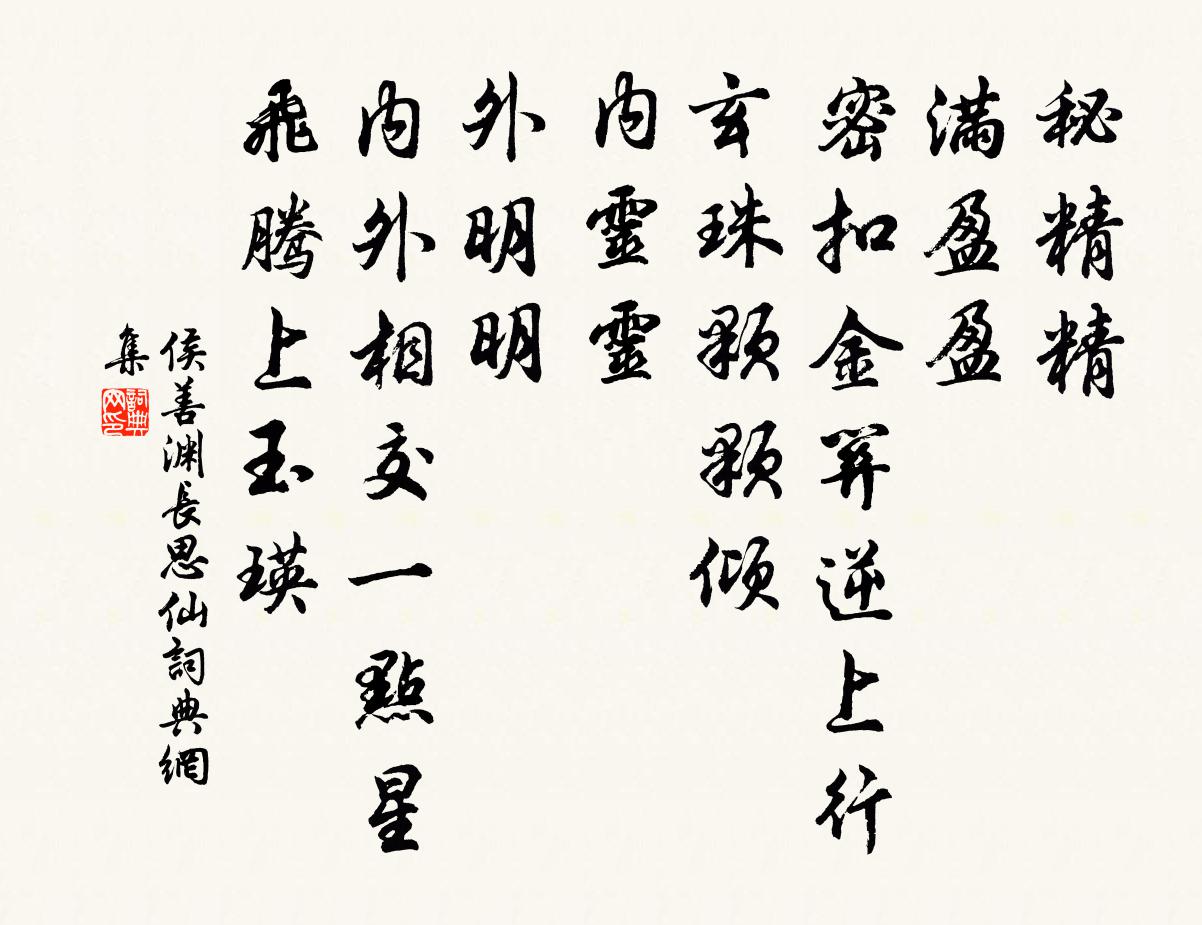 秘精精
滿盈盈
密扣金關逆上行
玄珠顆顆傾
內靈靈
外明明
內外相交一點星
飛騰上玉瑛
侯善淵長思仙詞典網
集
詞典網印